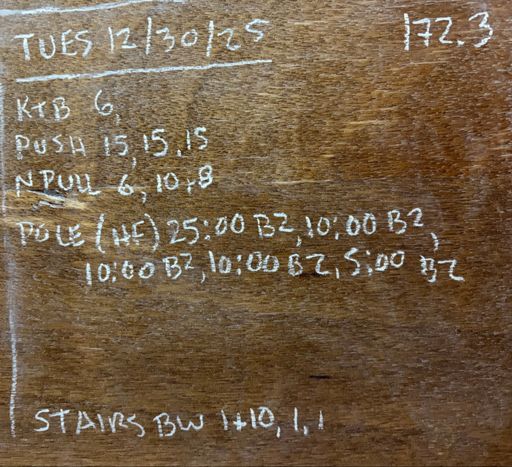 TUES 12/30/25 172.3
K+B 6,
PUSH 15, 15, 15
N PULL 6, 10, 8
POLE (HF) 25:00 BZ, 10:00 BZ,
10:00 BZ, 10:00 BZ, 5:00 BZ
STAIRS BW 1+10, 1, 1